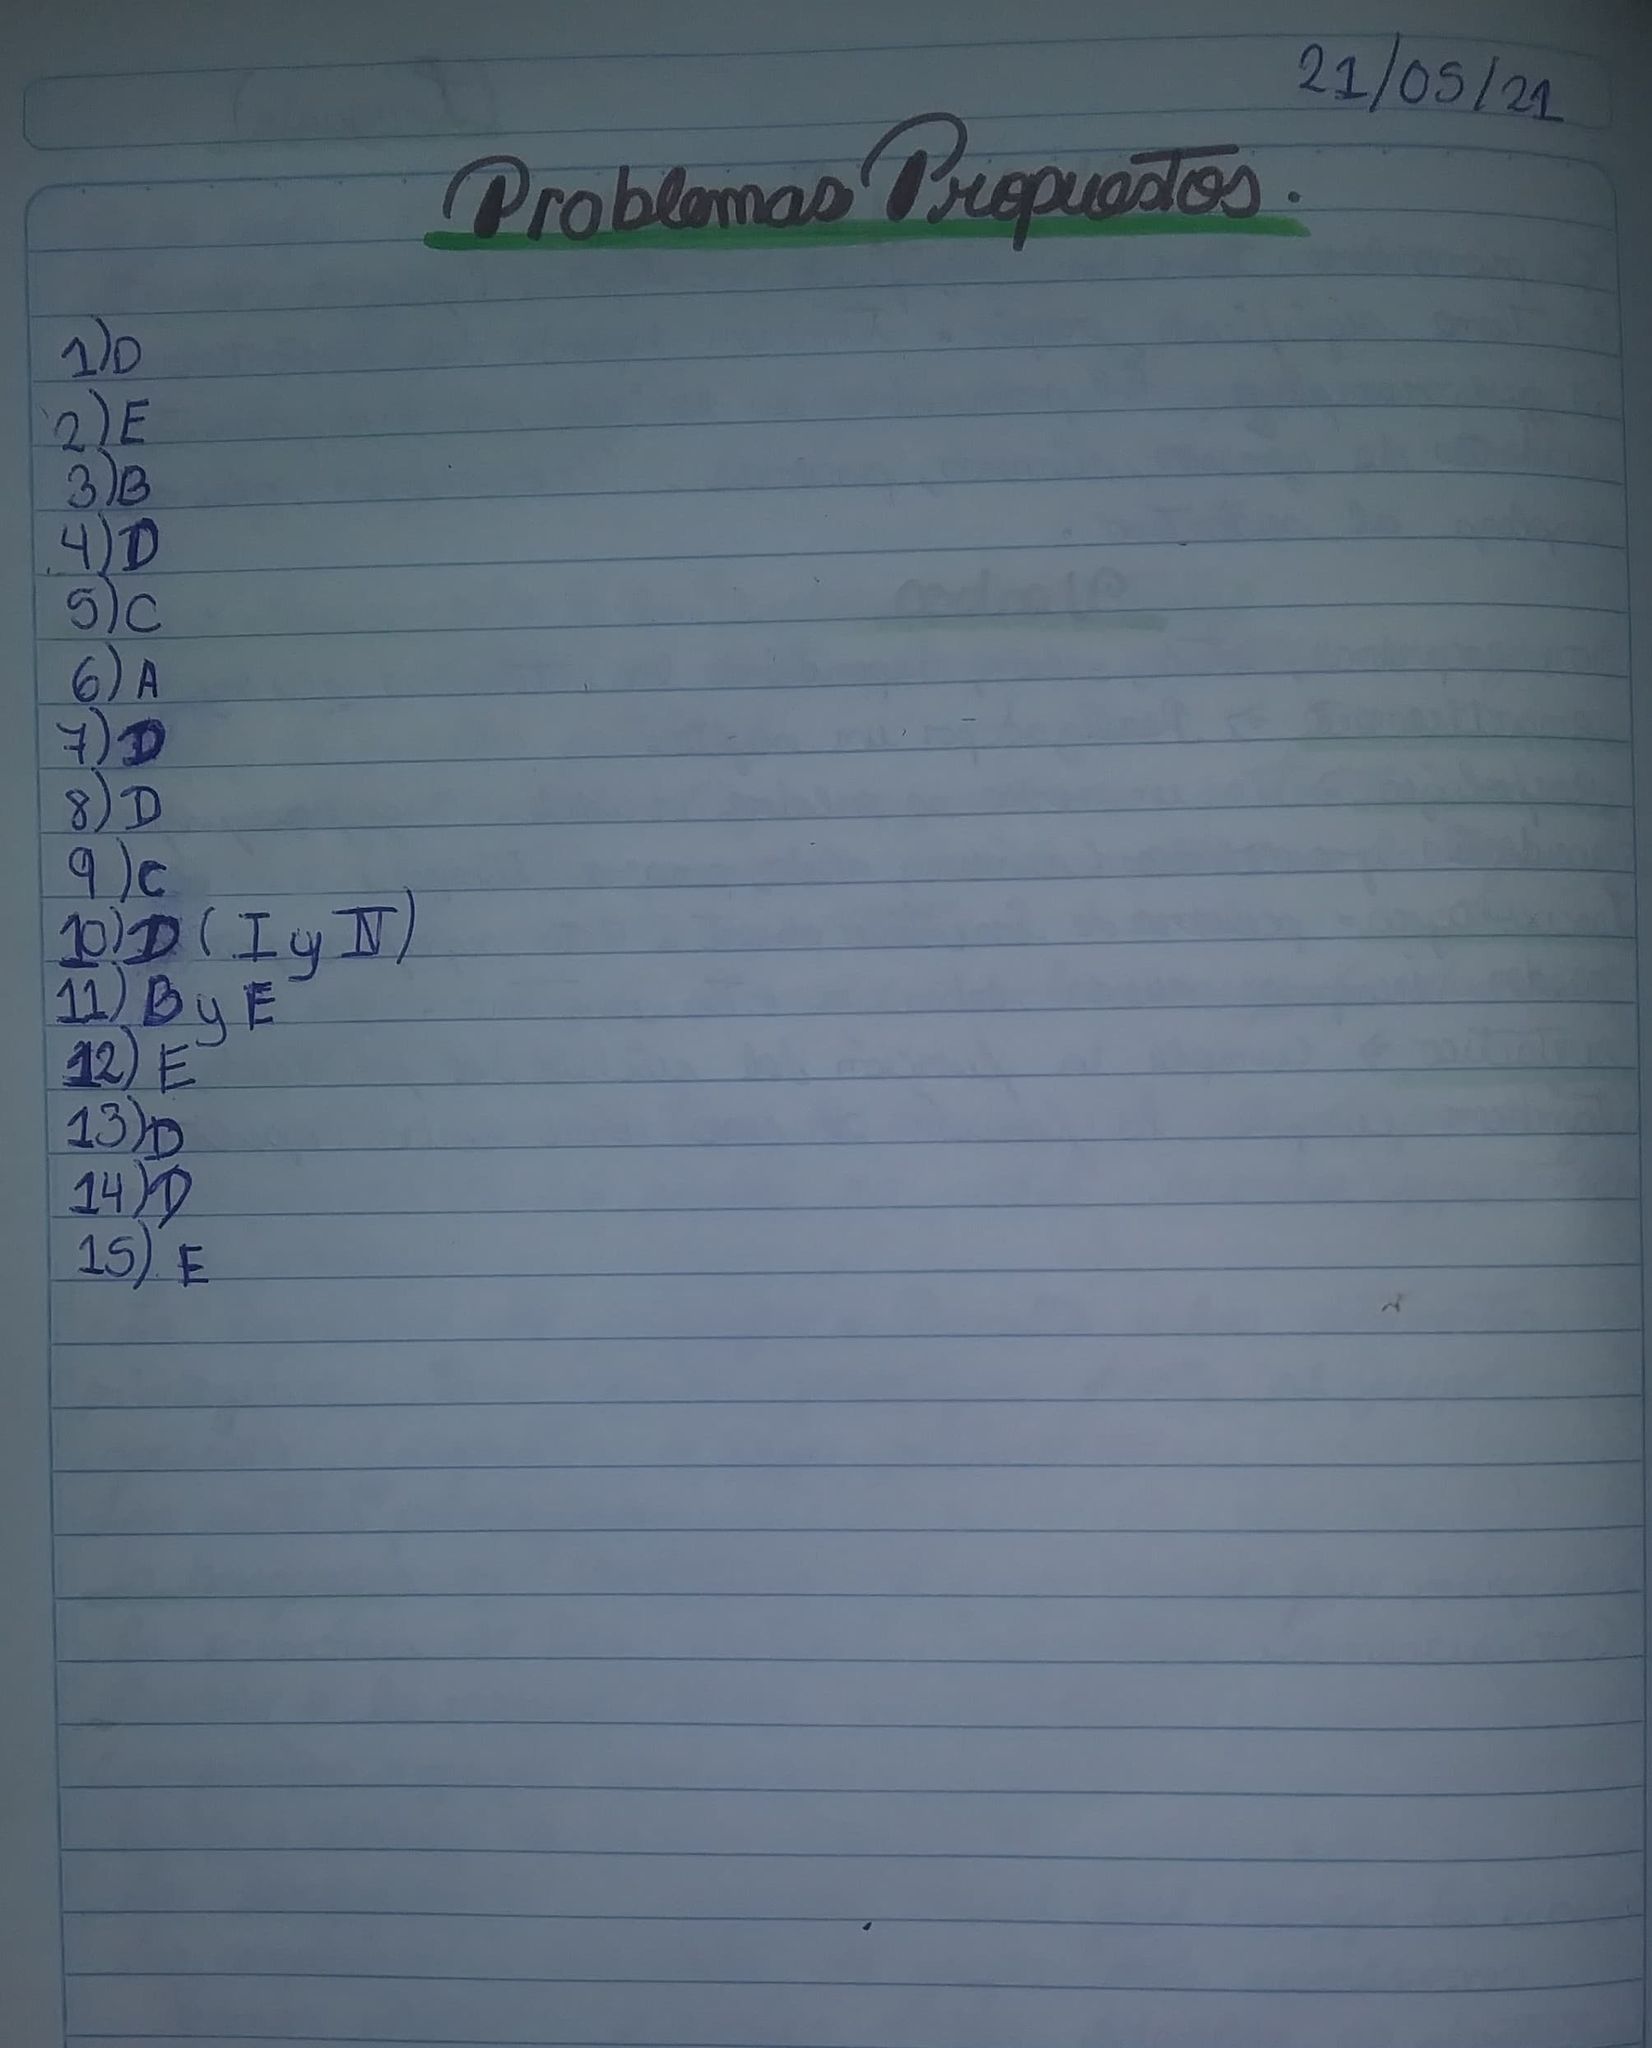 21/05/21
Problemas Propuestos.
1) D
2) E
3) B
4) D
5) C
6) A
7) D
8) D
9) C
10) D ( I y IV )
11) B y E
12) E
13) D
14) D
15) E